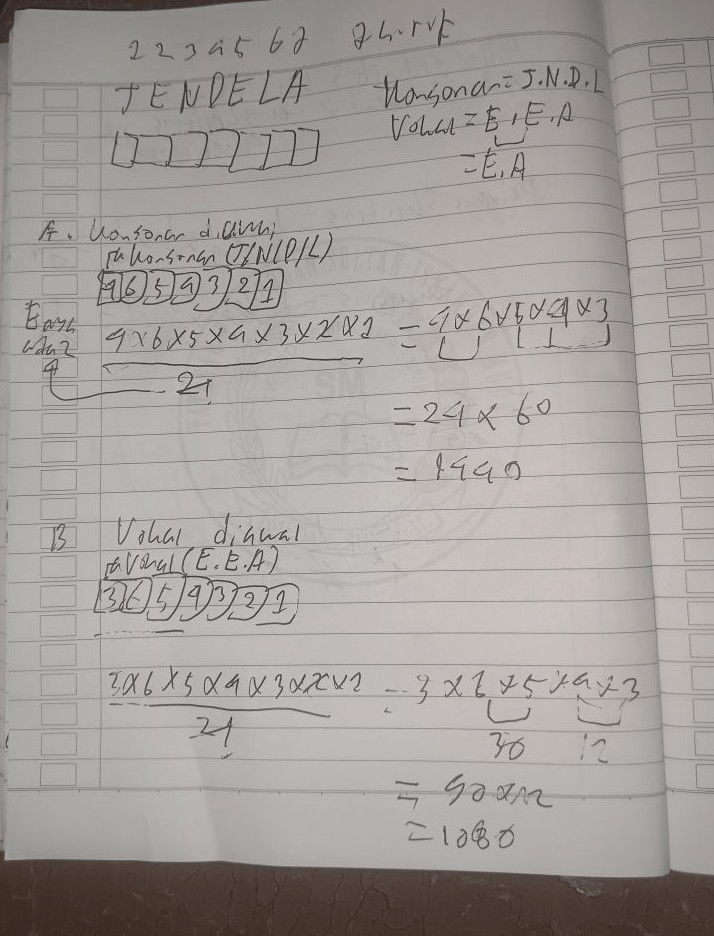 1 2 3 4 5 6 7 7 huruf
JENDELA
Konsonan = J.N.D.L
Vokal = E, E. A
= E. A
A. Konsonan diawal
Konsonan (J/N/D/L)
4 6 5 4 3 2 1
E ada 2
4 x 6 x 5 x 4 x 3 x 2 x 1 = 4 x 6 x 5 x 4 x 3
2!
= 24 x 60
= 1440
B Vokal diawal
Vokal (E. E. A)
3 6 5 4 3 2 1
3 x 6 x 5 x 4 x 3 x 2 x 1 = 3 x 6 x 5 x 4 x 3
2! 30 12
= 90 x 12
= 1080